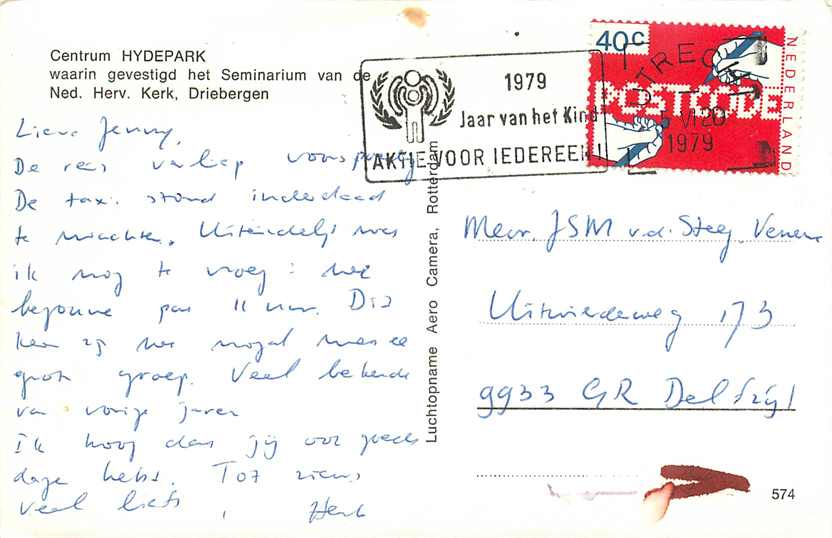 Centrum HYDEPARK
waarin gevestigd het Seminarium van de
Ned. Herv. Kerk, Driebergen
Lieve Jenny,
De reis verliep voorspoedig
De taxi stond inderdaad
te wachten. Uiteindelijk was
ik nog te vroeg: we
begonnen pas 11 uur. Dit
keer zijn we nogal een
grote groep. Veel bekende
van vorige jaren
Ik hoop dat jij ook goede
dagen hebt. Tot ziens
Veel liefs, Henk
Luchtopname Aero Camera, Rotterdam
1979
Jaar van het Kind
AKTIE VOOR IEDEREEN!
UTRECHT
VI 20
1979
40c
POSTCODE
NEDERLAND
Mevr. JSM v.d. Steeg
Uitwierderweg 173
9933 GR Delfzijl
574